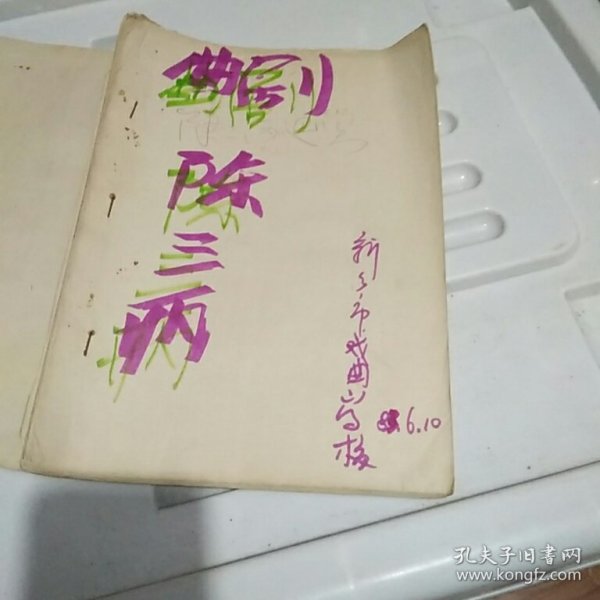 曲剧
陈三两
新乡市戏曲学校
6.10
孔夫子旧书网
www.kongfz.com